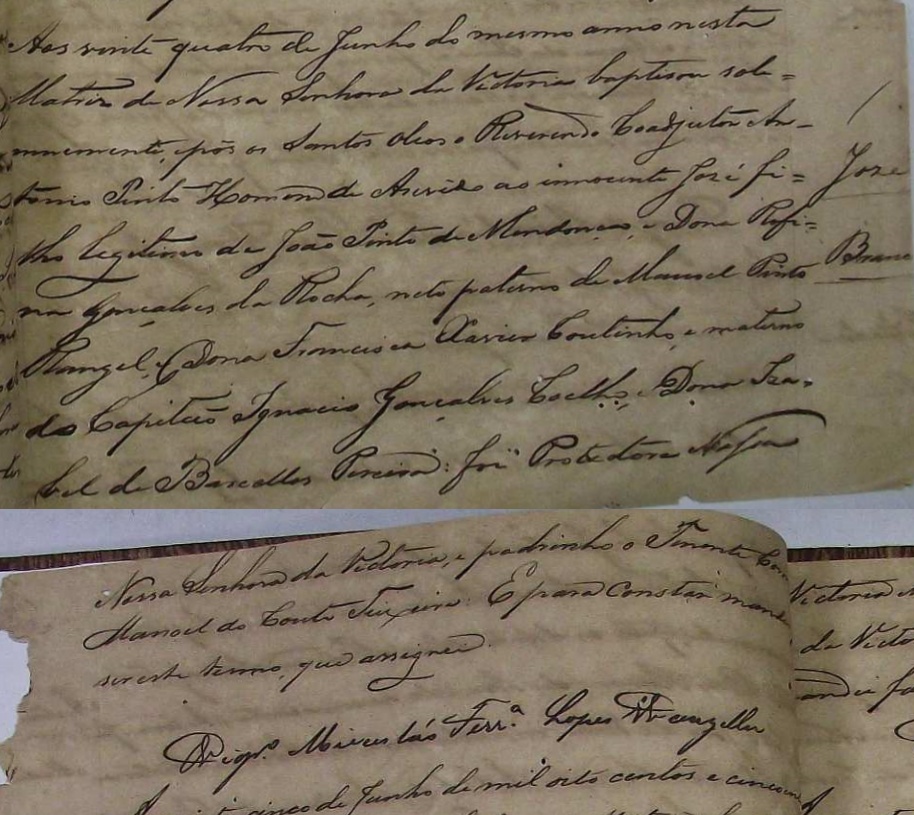 Aos vinte quatro de Junho do mesmo anno nesta
Matriz de Nossa Senhora da Victoria baptisou sole=
mnemente, e pôs os Santos oleos o Reverendo Coadjutor An-
tonio Pinto Homem de Asevêdo ao innocente José fi=
lho legitimo de João Pinto de Mendonça, e Dona Rufi=
na Gonçalves da Rocha, neto paterno de Manoel Pinto
Rangel, e Dona Francisca Xavier Coutinho, e materno
do Capitão Ignacio Gonçalves Coelho, e Dona Iza=
bel de Barcellos Pereira: foi Protectora Nossa
Joze
Branc
Nossa Senhora da Victoria, e padrinho o Tenente Com
Manoel do Couto Teixeira. E para constar mandei
ser este termo, que assignei.
Vigr.º Mieceslás Ferr.ª Lopes Wanzeller
cinco de Junho de mil oito centos e cincoen
Victoria
da Victo